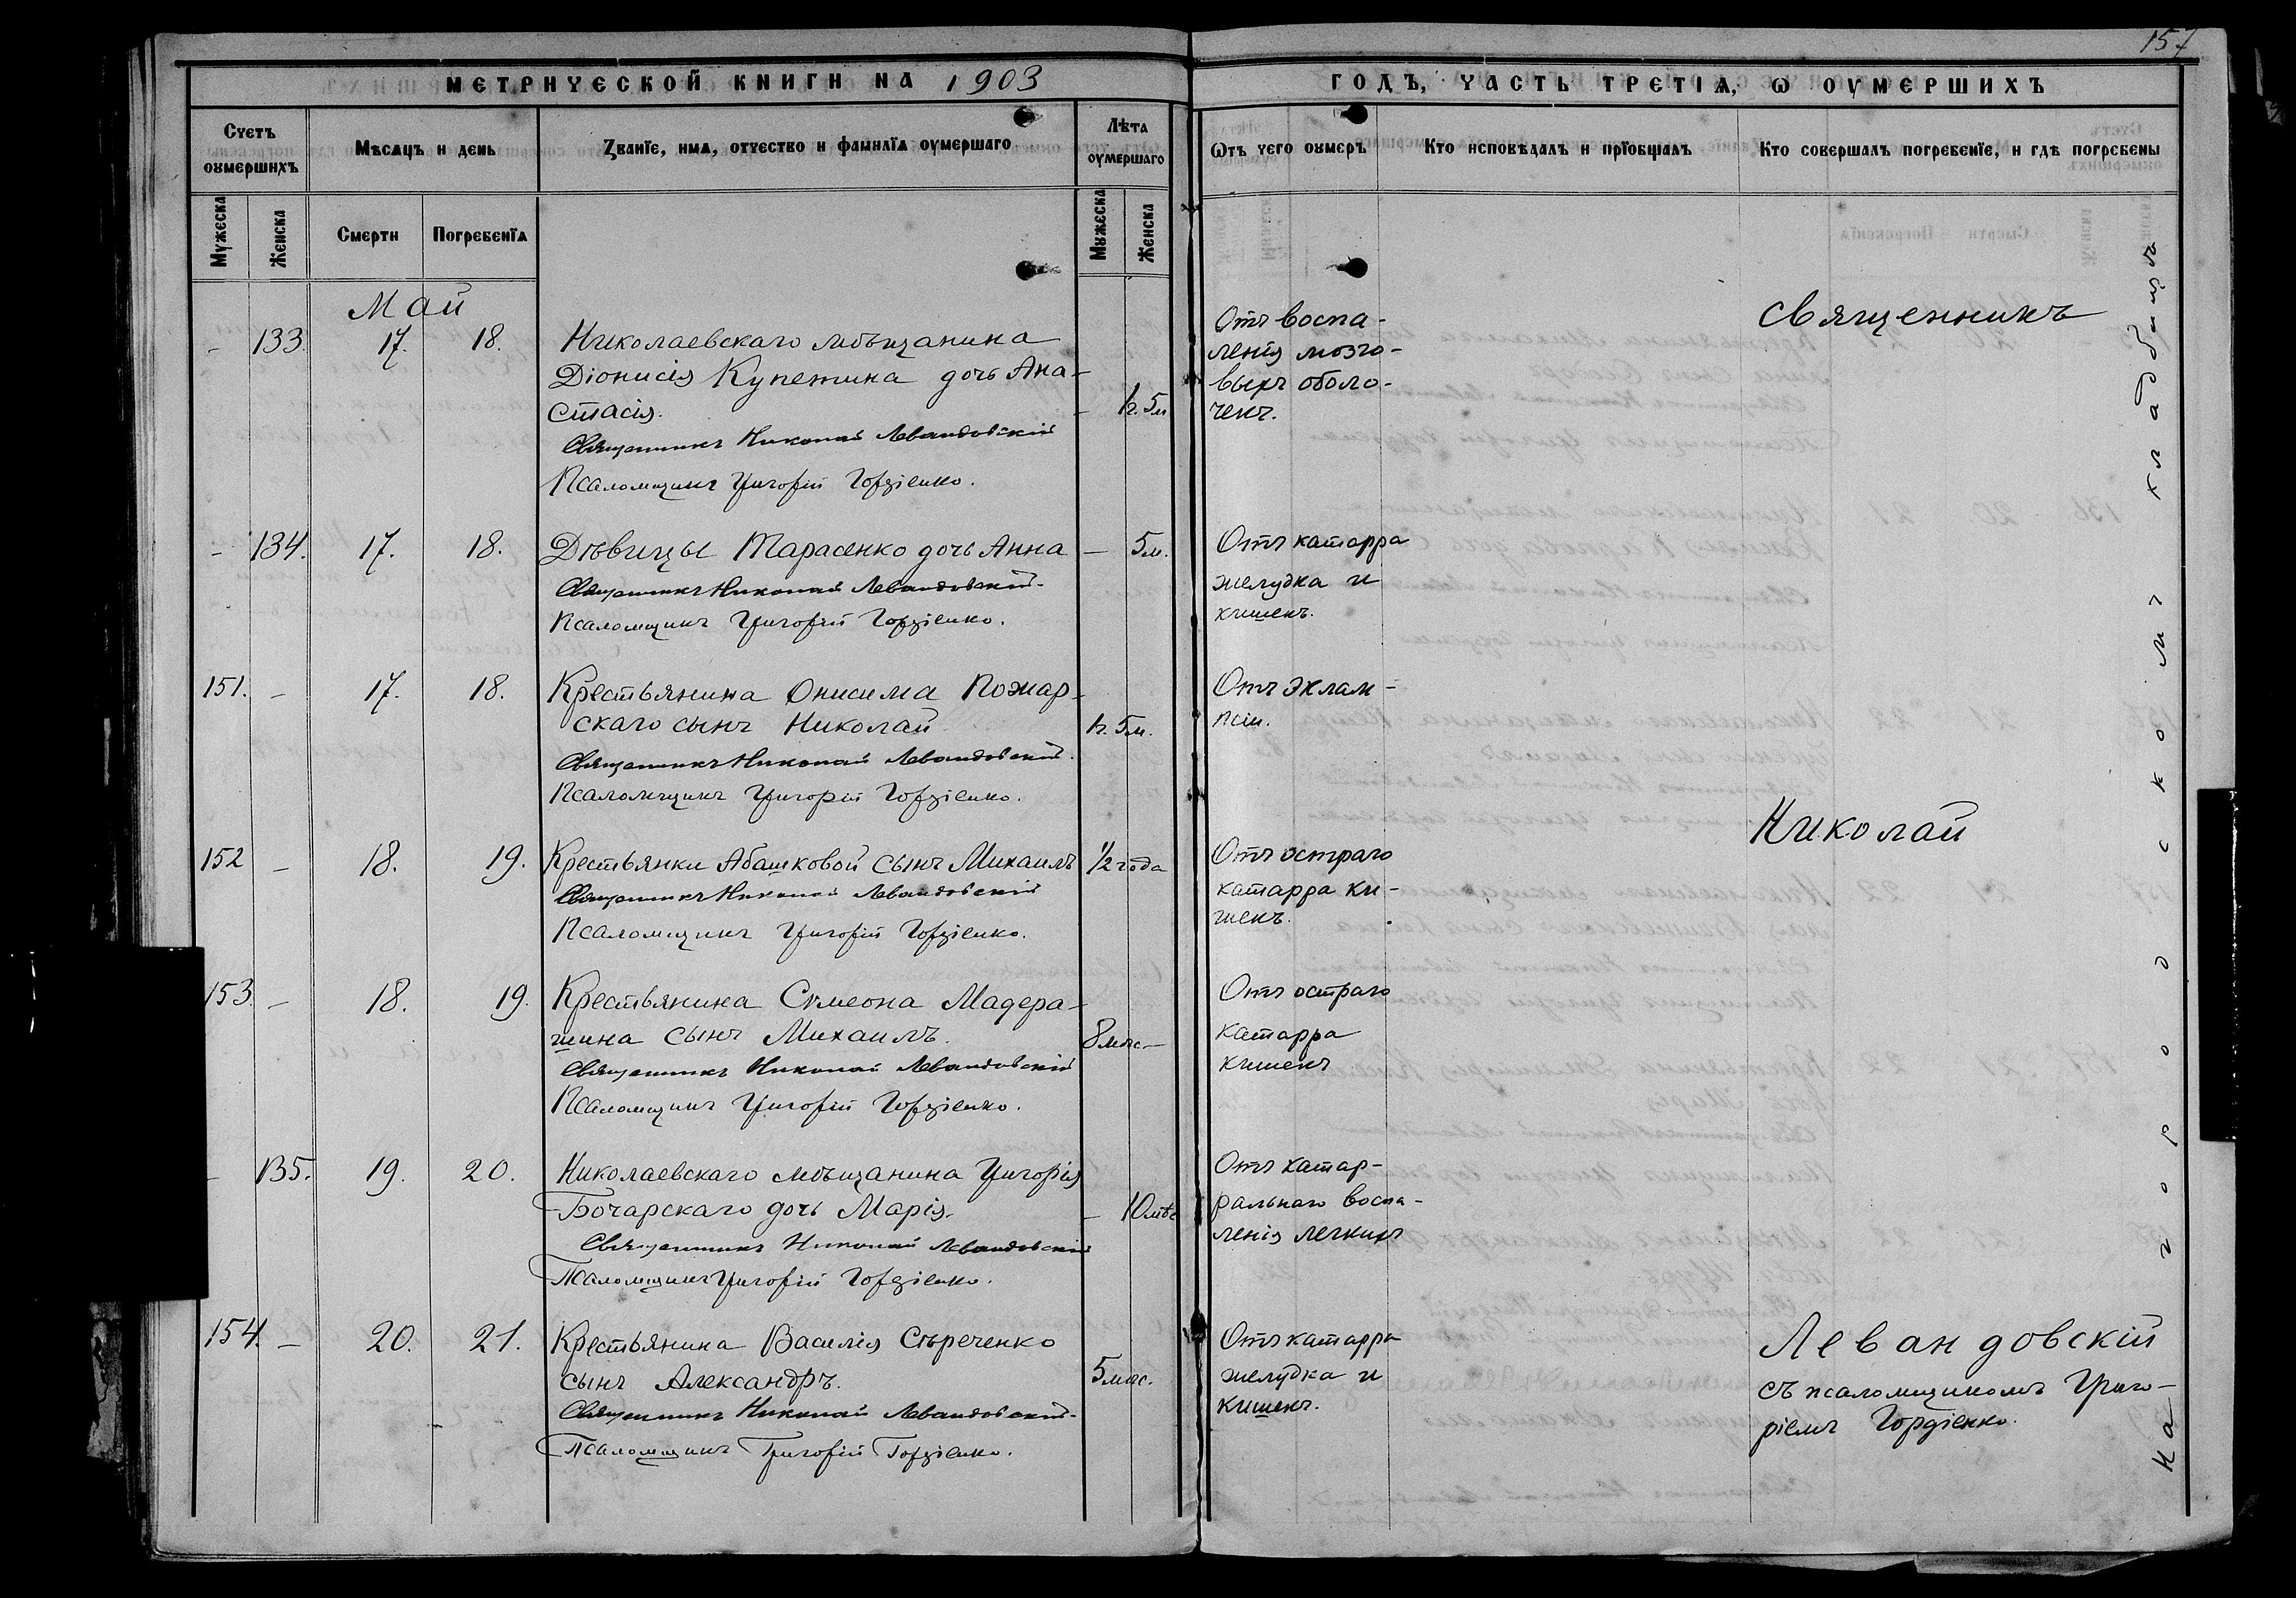 157
МЕТРИЧЕСКОЙ КНИГИ НА 1903
ГОДЪ, ЧАСТЬ ТРЕТІѦ, Ѡ ОУМЕРШИХЪ
Счетъ оумершихъ
Мѣсяцъ и день
Званїе, имя, отчество и фамилїа оумершаго
Лѣта оумершаго
Ѿтъ чего оумеръ
Кто исповѣдалъ и прїобщалъ
Кто совершалъ погребенїе, и гдѣ погребены
Мужеска
Женска
Смерти
Погребенїа
Мужеска
Женска
Май
- 133. 17. 18. Николаевскаго мѣщанина
Діонисія Купетина дочь Ана-
стасія. - 1г. 5м
Священникъ Николай Левандовскій
Псаломщикъ Григорій Гордіенко.
Отъ воспа-
ленія мозго-
выхъ оболо-
чекъ.
- 134. 17. 18. Дѣвицы Тарасенко дочь Анна - 5м.
Священникъ Николай Левандовскій.
Псаломщикъ Григорій Гордіенко.
Отъ катарра
желудка и
кишекъ.
151. - 17. 18. Крестьянина Онисима Пожар-
скаго сынъ Николай 1г. 5м.
Священникъ Николай Левандовскій.
Псаломщикъ Григорій Гордіенко.
Отъ эклам-
псіи.
152 - 18. 19. Крестьянки Абашковой сынъ Михаилъ 1/2 года
Священникъ Николай Левандовскій
Псаломщикъ Григорій Гордіенко.
Отъ остраго
катарра ки-
шекъ.
153. - 18. 19. Крестьянина Сѵмеона Мадера-
шина сынъ Михаилъ. 8 мѣс. -
Священникъ Николай Левандовскій
Псаломщикъ Григорій Гордіенко.
Отъ остраго
катарра
кишекъ
- 135. 19. 20. Николаевскаго мѣщанина Григорія
Бочарскаго дочь Марія. - 10 мѣс
Священникъ Николай Левандовскій
Псаломщикъ Григорій Гордіенко.
Отъ катар-
ральнаго воспа-
ленія легкихъ
154. - 20. 21. Крестьянина Василія Стреченко
сынъ Александръ. 5 мѣс.
Священникъ Николай Левандовскій.
Псаломщикъ Григорій Гордіенко.
Отъ катарра
желудка и
кишекъ.
Священникъ
Николай
Левандовскій
съ псаломщикомъ Григо-
ріемъ Гордіенко.
На городскомъ кладбищѣ